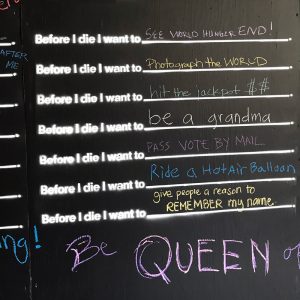 Before I die I want to SEE WORLD HUNGER END!
AFTER
ME
Before I die I want to Photograph the WORLD
Before I die I want to hit the jackpot $$
Before I die I want to be a grandma
Before I die I want to PASS VOTE BY MAIL
Before I die I want to Ride a Hot Air Balloon
give people a reason to
Before I die I want to REMEMBER my name
ng!
Be QUEEN of